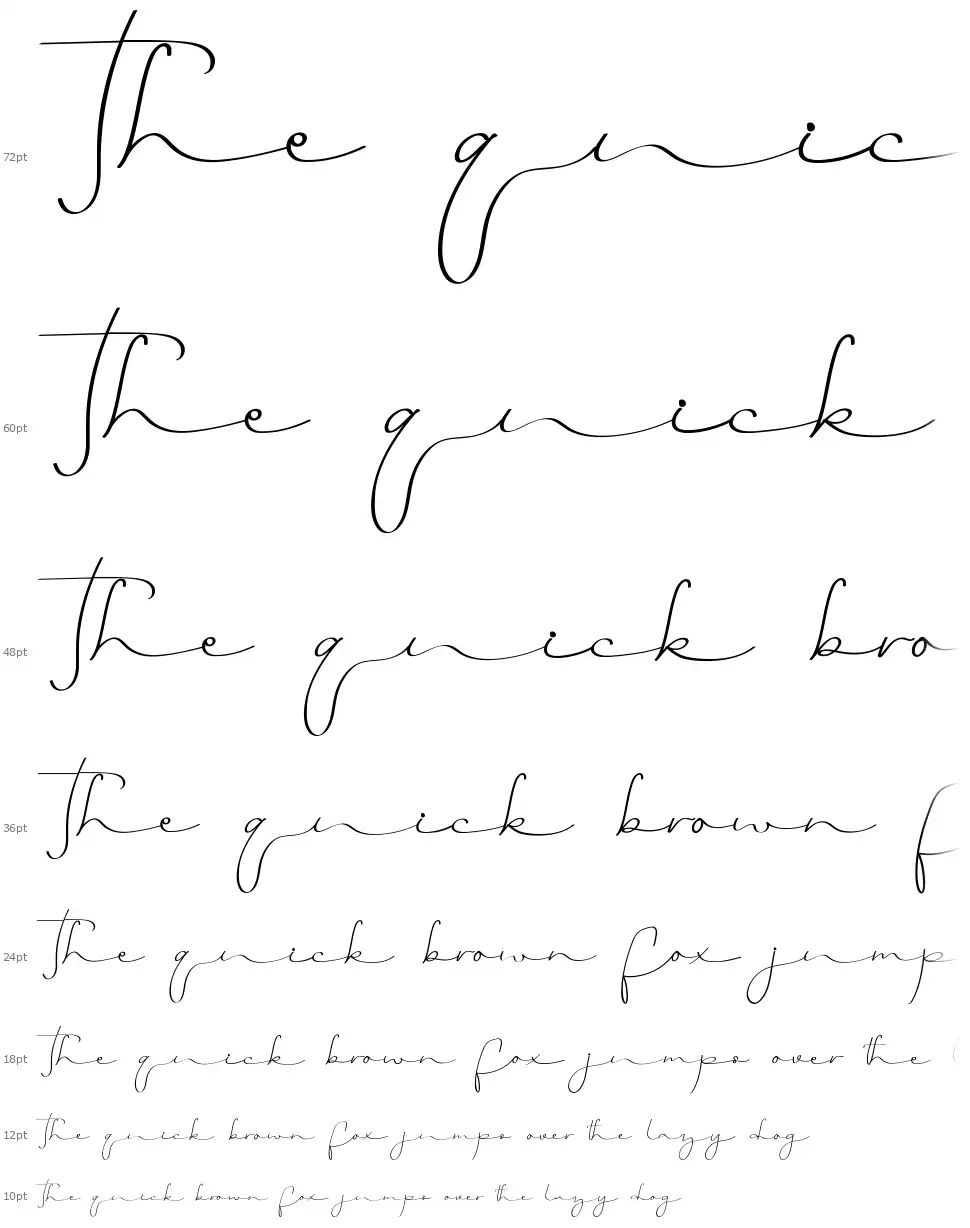 72pt The quic
60pt The quick
48pt The quick bro
36pt The quick brown f
24pt The quick brown fox jump
18pt The quick brown fox jumps over the l
12pt The quick brown fox jumps over the lazy dog
10pt The quick brown fox jumps over the lazy dog